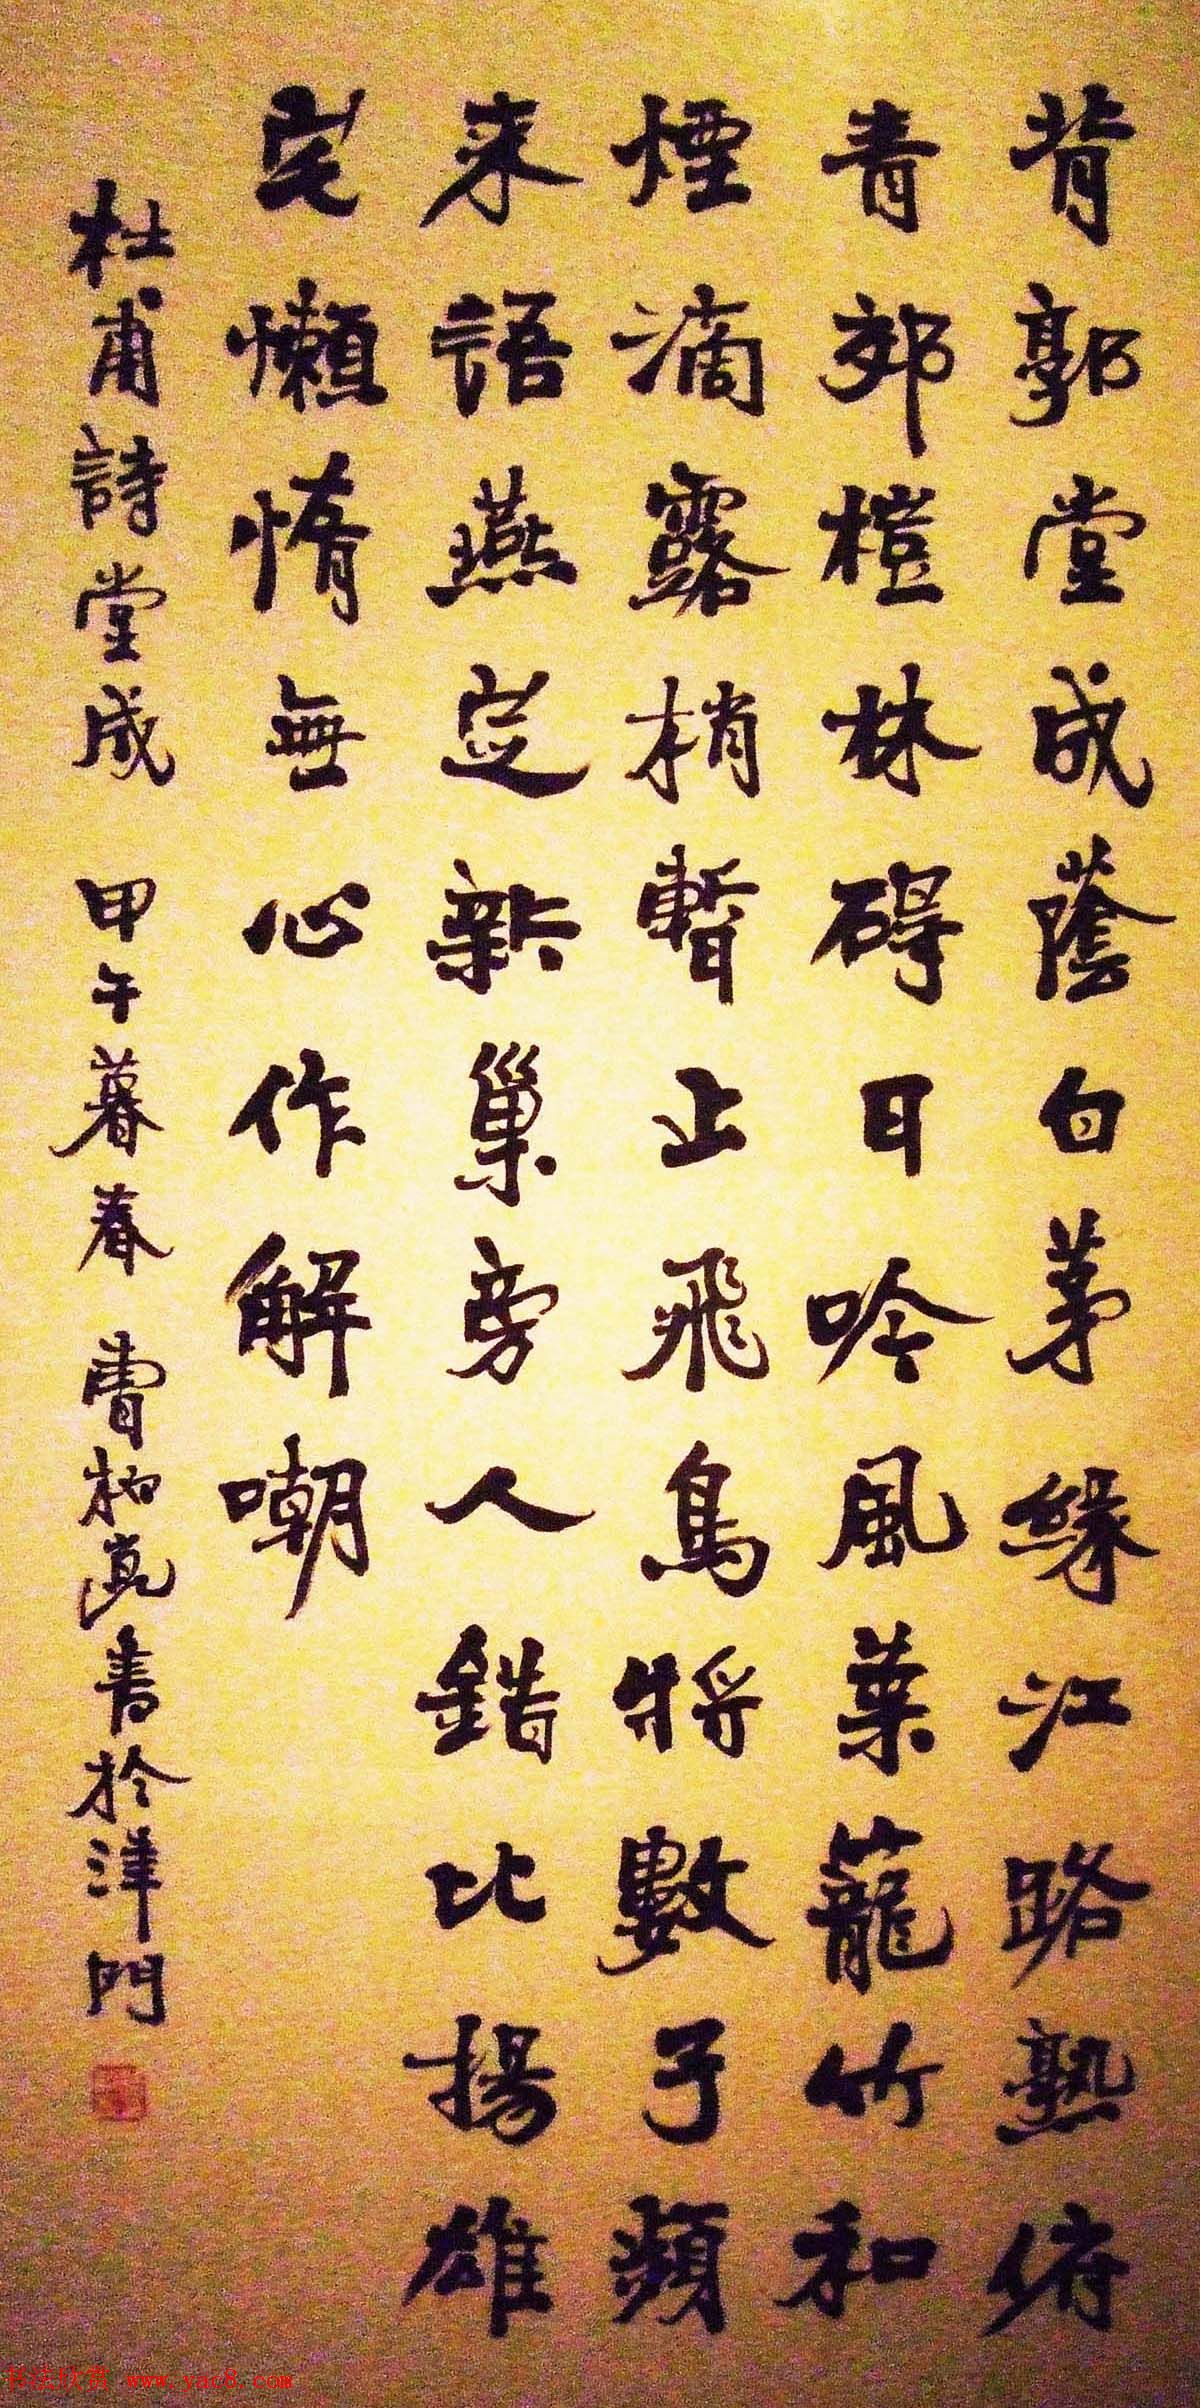 背郭堂成蔭白茅緣江路熟俯
青郊榿林碍日吟風葉蘢竹和
煙滴露梢暫止飛鳥將數子頻
来語燕定新巢旁人錯比揚雄
宅懶惰無心作解嘲
杜甫詩堂成 甲午暮春 曹柏崑書於津門
书法欣赏 www.yac8.com